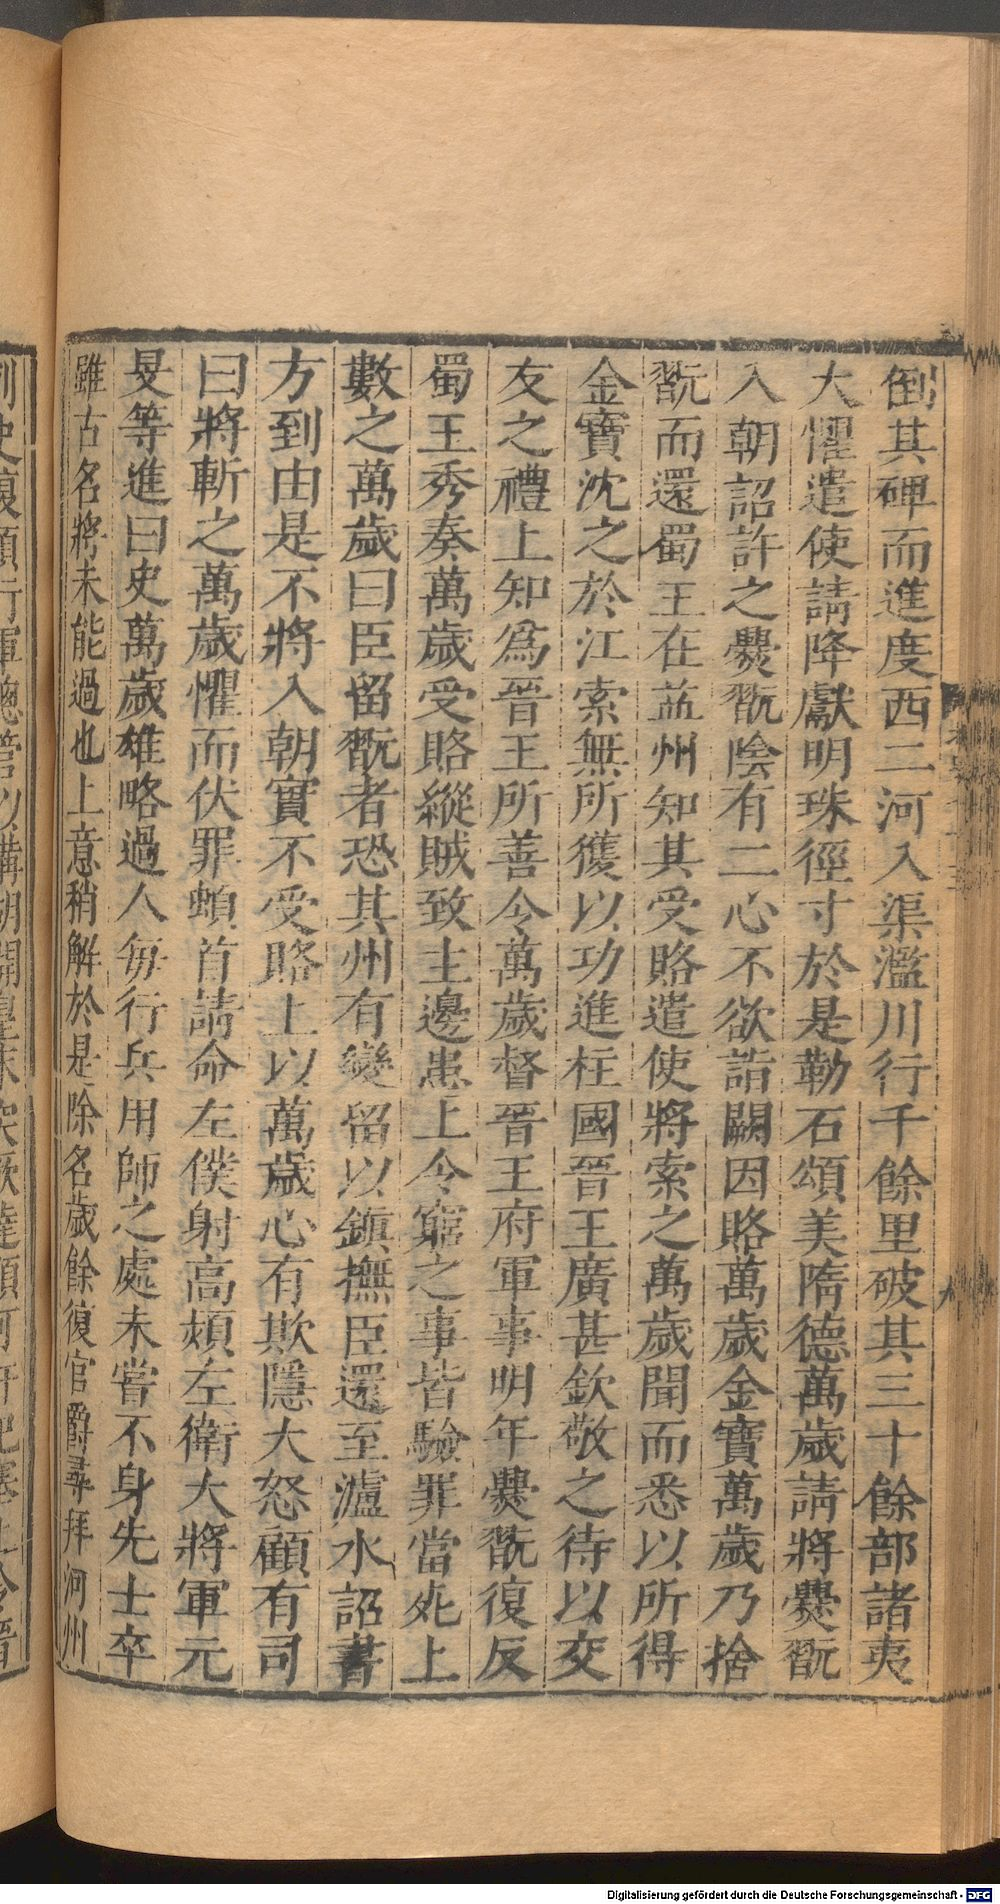 倒其碑而進度西二河入渠濫川行千餘里破其三十餘部諸夷
大懼遣使請降獻明珠徑寸於是勒石頌美隋德萬歲請將爨翫
入朝詔許之爨翫陰有二心不欲詣闕因賂萬歲金寶萬歲乃捨
翫而還蜀王在益州知其受賂遣使將索之萬歲聞而悉以所得
金寶沈之於江索無所獲以功進柱國晉王廣甚欽敬之待以交
友之禮上知爲晉王所善令萬歲督晉王府軍事明年爨翫復反
蜀王秀奏萬歲受賂縱賊致主邊患上令窮之事皆驗罪當死上
數之萬歲曰臣留翫者恐其州有變留以鎮撫臣還至瀘水詔書
方到由是不將入朝實不受賂上以萬歲心有欺隱大怒顧有司
曰將斬之萬歲懼而伏罪頓首請命左僕射高熲左衛大將軍元
旻等進曰史萬歲雄略過人每行兵用師之處未嘗不身先士卒
雖古名將未能過也上意稍解於是除名歲餘復官爵尋拜河州
Digitalisierung gefördert durch die Deutsche Forschungsgemeinschaft - DFG